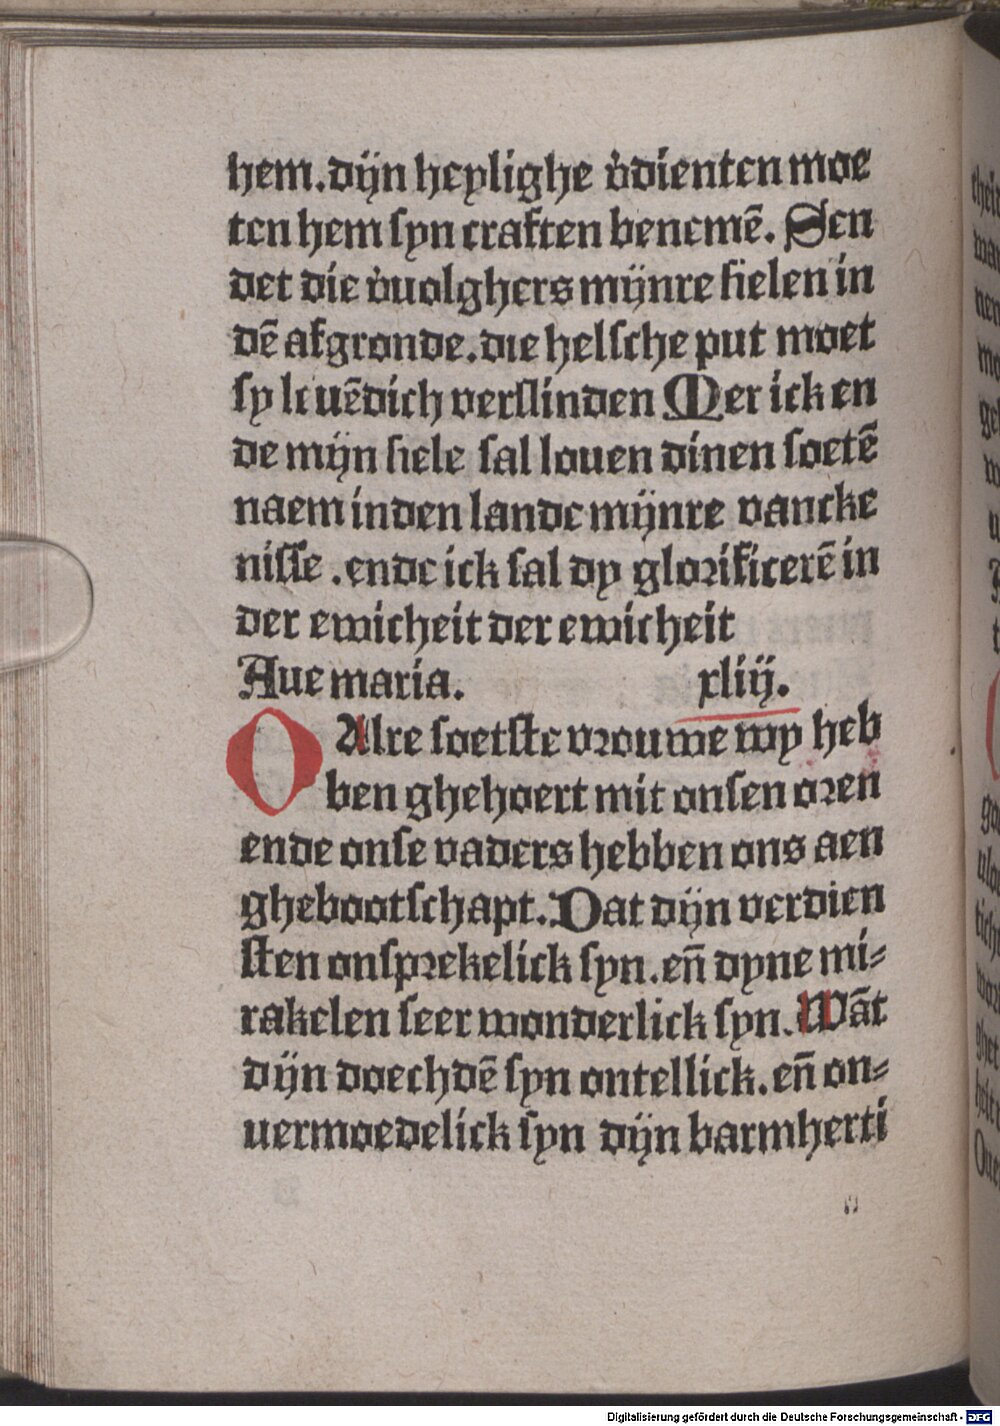 hem.dÿn heylighe v̉dienten moe
ten hem ſyn craften benemē. Sen
det die v̉uolghers mÿnre ſielen in
dē afgronde.die helſche put moet
ſy leuēdich verſlinden Mer ick en
de mÿn ſiele ſal louen dinen ſoetē
naem inden lande mÿnre vancke
niſſe .ende ick ſal dy gloꝛificerē in
der ewicheit der ewicheit
Aue maria. xliÿ.
O Alre ſoetſte vꝛouwe wy heb
ben ghehoert mit onſen oꝛen
ende onſe vaders hebben ons aen
ghebootſchapt.Dat dÿn verdien
ſten onſpꝛekelick ſyn.en̄ dyne mi⸗
rakelen ſeer wonderlick ſyn.Wāt
dÿn doechdē ſyn ontellick.en̄ on⸗
uermoedelick ſyn dÿn barmherti
Digitalisierung gefördert durch die Deutsche Forschungsgemeinschaft - DFG